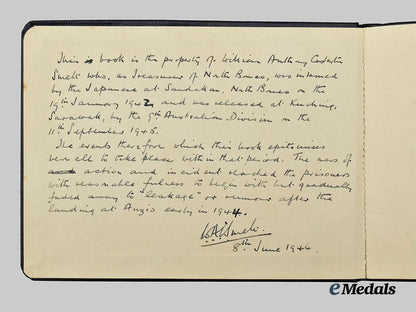 This is book is the property of William Anthony Custerton
Smelt who, as Treasurer of North Borneo, was interned
by the Japanese at Sandakan, North Borneo on the
19th January 1942 and was released at Kuching,
Sarawak, by the 9th Australian Division on the
11th September 1945.
The events therefore which this book epitomises
were all to take place within that period. The news of
action and incident reached the prisoners
with reasonable fulness to begin with but gradually
faded away to "leakage" or rumour after the
landing at Anzio early in 1944.
W.A.C. Smelt.
8th June 1946.
eMedals